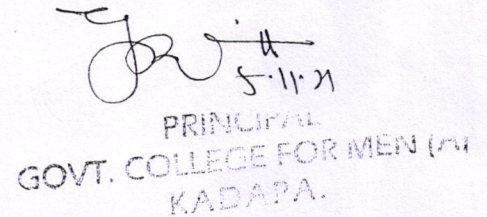 5.11.21
PRINCIPAL
GOVT. COLLEGE FOR MEN (A)
KADAPA.